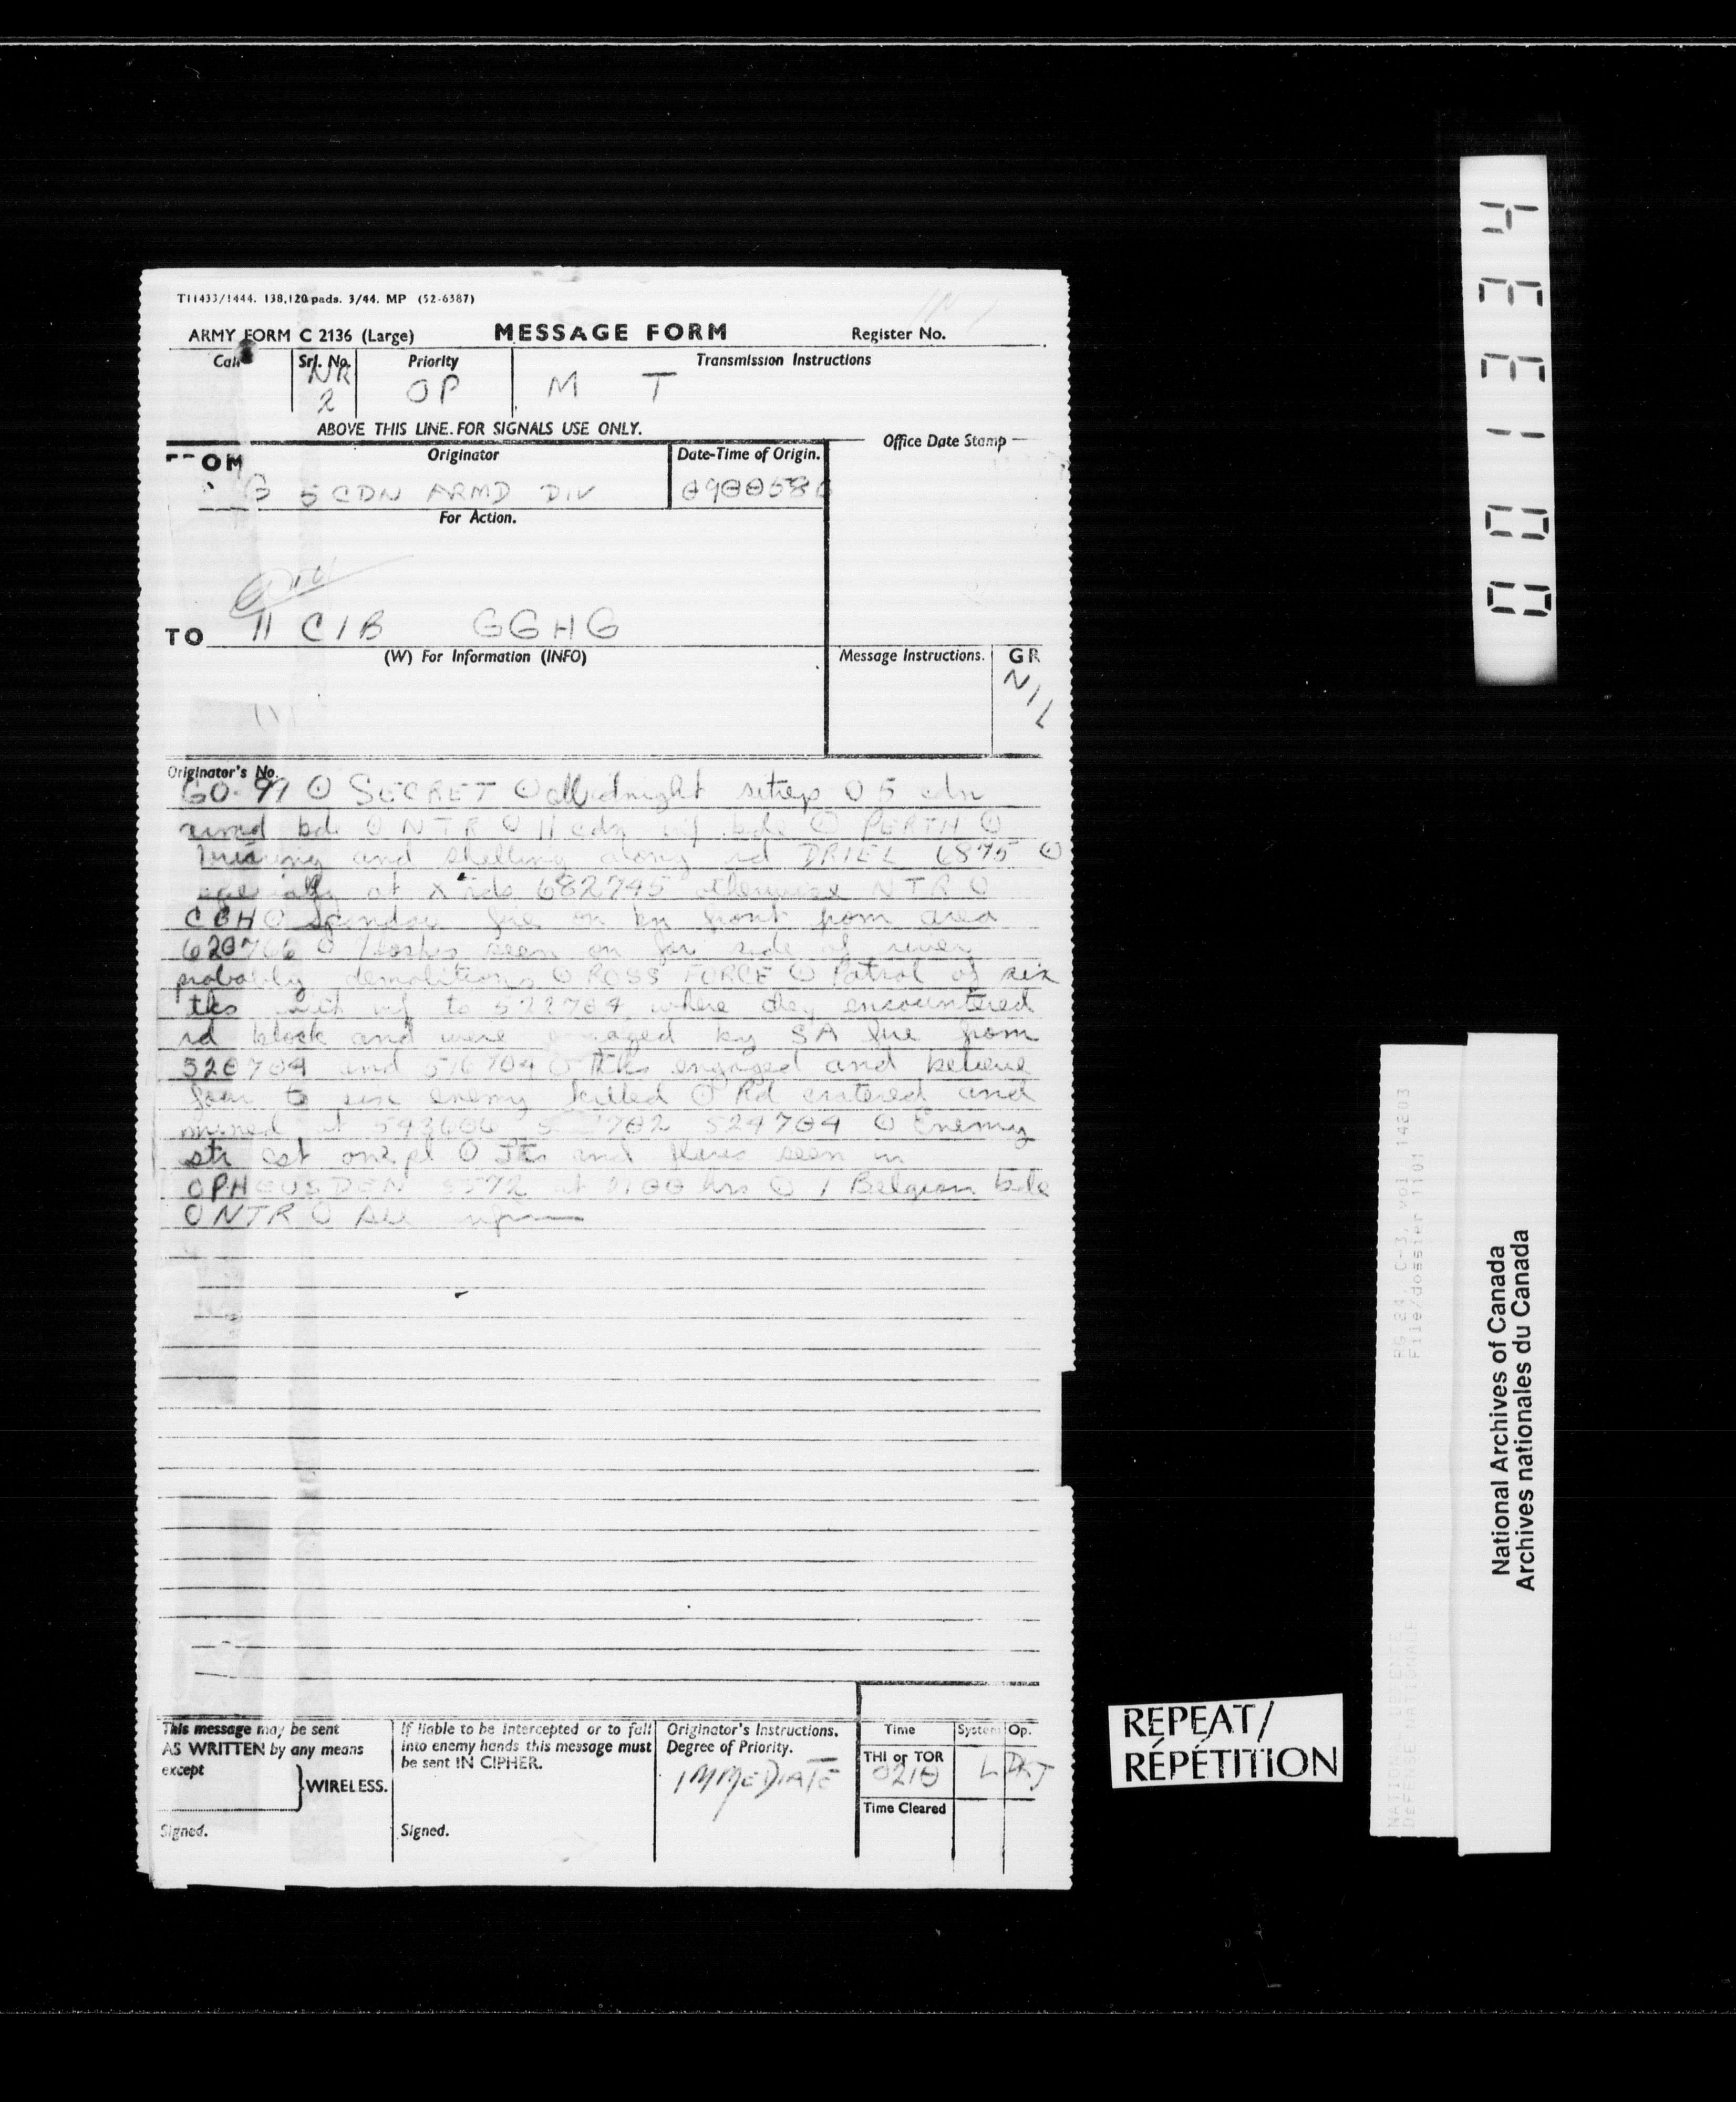 T11433/1444. 138,120 pads. 3/44. MP (52-6387)
ARMY FORM C 2136 (Large) MESSAGE FORM Register No.
Call Srl. No. Priority Transmission Instructions
NR 2 OP M T
ABOVE THIS LINE. FOR SIGNALS USE ONLY.
Office Date Stamp
OM Originator Date-Time of Origin.
5 CDN ARMD DIV
For Action.
TO 11 CIB GGHG
(W) For Information (INFO) Message Instructions. GR
NIL
Originator's No.
GO-91 ⊙ SECRET ⊙ Midnight sitrep ⊙ 5 cdn
armd bde ⊙ NTR ⊙ 11 cdn inf bde ⊙ PERTH ⊙
and shelling along rd DRIEL 6875 ⊙
especially at X rds 682745 otherwise NTR ⊙
CBH ⊙ Spandau fire on bn front from area
⊙ flashes seen on far side of river
probably demolitions ⊙ ROSS FORCE ⊙ Patrol of six
tks with inf to 522704 where they encountered
rd block and were engaged by SA fire from
520704 and 516704 ⊙ Tks engaged and believe
four to six enemy killed ⊙ Rd cratered and
mined at 524704 ⊙ Enemy
str est one pl ⊙ and flares seen in
OPHEUSDEN 5572 at 2100 hrs ⊙ 1 Belgian bde
⊙ NTR ⊙ All
This message may be sent
AS WRITTEN by any means
except
WIRELESS.
Signed.
If liable to be intercepted or to fall
into enemy hands this message must
be sent IN CIPHER.
Signed.
Originator's Instructions.
Degree of Priority.
IMMEDIATE
Time System Op.
THI or TOR
0210 L DKJ
Time Cleared
REPEAT/
RÉPÉTITION
001334
RG 24, C-3, vol. 14203
File/dossier 1101
NATIONAL DEFENCE
DEFENSE NATIONALE
National Archives of Canada
Archives nationales du Canada